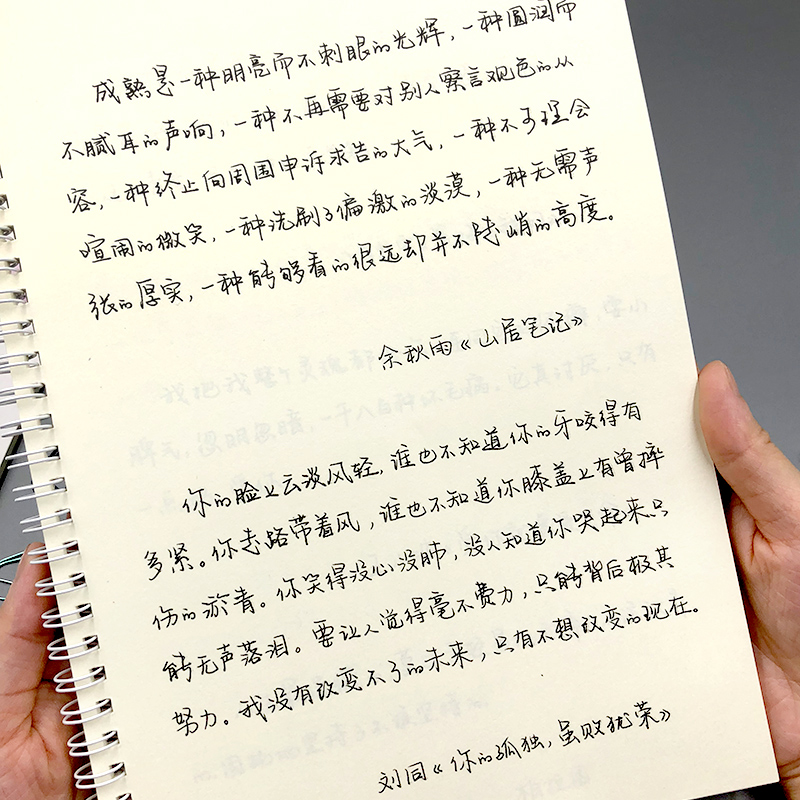 成熟是一种明亮而不刺眼的光辉，一种圆润而
不腻耳的声响，一种不再需要对别人察言观色的从
容，一种终止向周围申诉求告的大气，一种不予理会
喧闹的微笑，一种洗刷了偏激的淡漠，一种无需声
张的厚实，一种能够看的很远却并不陡峭的高度。
余秋雨《山居笔记》
你的脸上云淡风轻，谁也不知道你的牙咬得有
多紧。你走路带着风，谁也不知道你膝盖上有曾摔
伤的淤青。你笑得没心没肺，没人知道你哭起来只
能无声落泪。要让人觉得毫不费力，只能背后极其
努力。我没有改变不了的未来，只有不想改变的现在。
刘同《你的孤独，虽败犹荣》